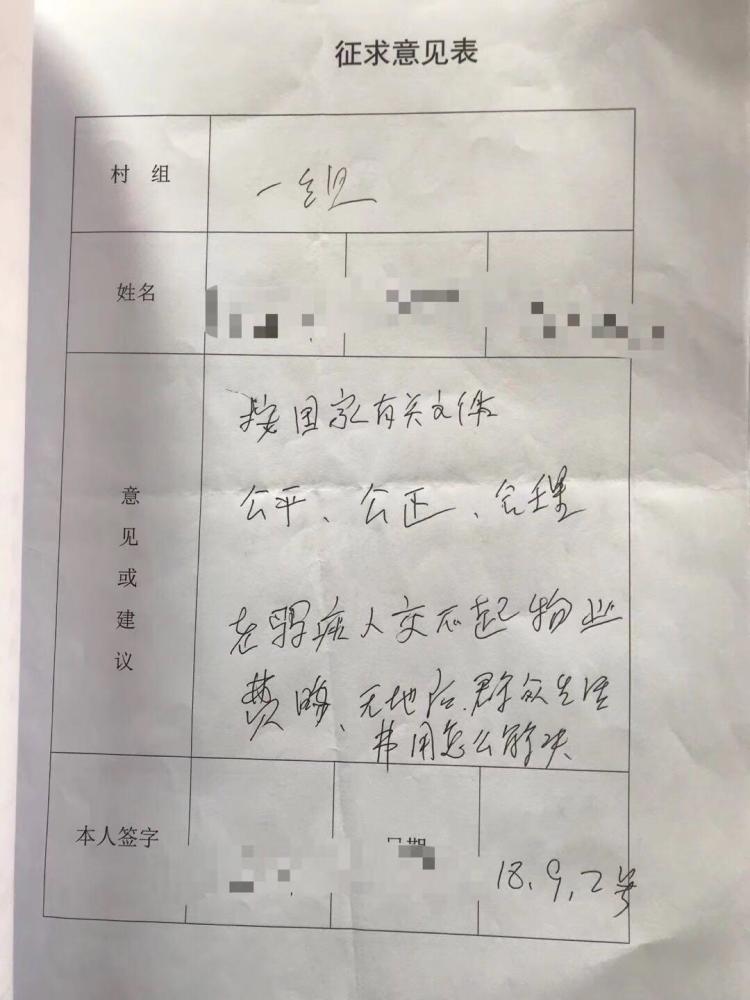 征求意见表
村 组
一组
姓名
意见或建议
按国家有关文件
公平、公正、合理
老弱病人交不起物业
费 无地后.群众生活
费用怎么解决
本人签字
日期
18.9.2号